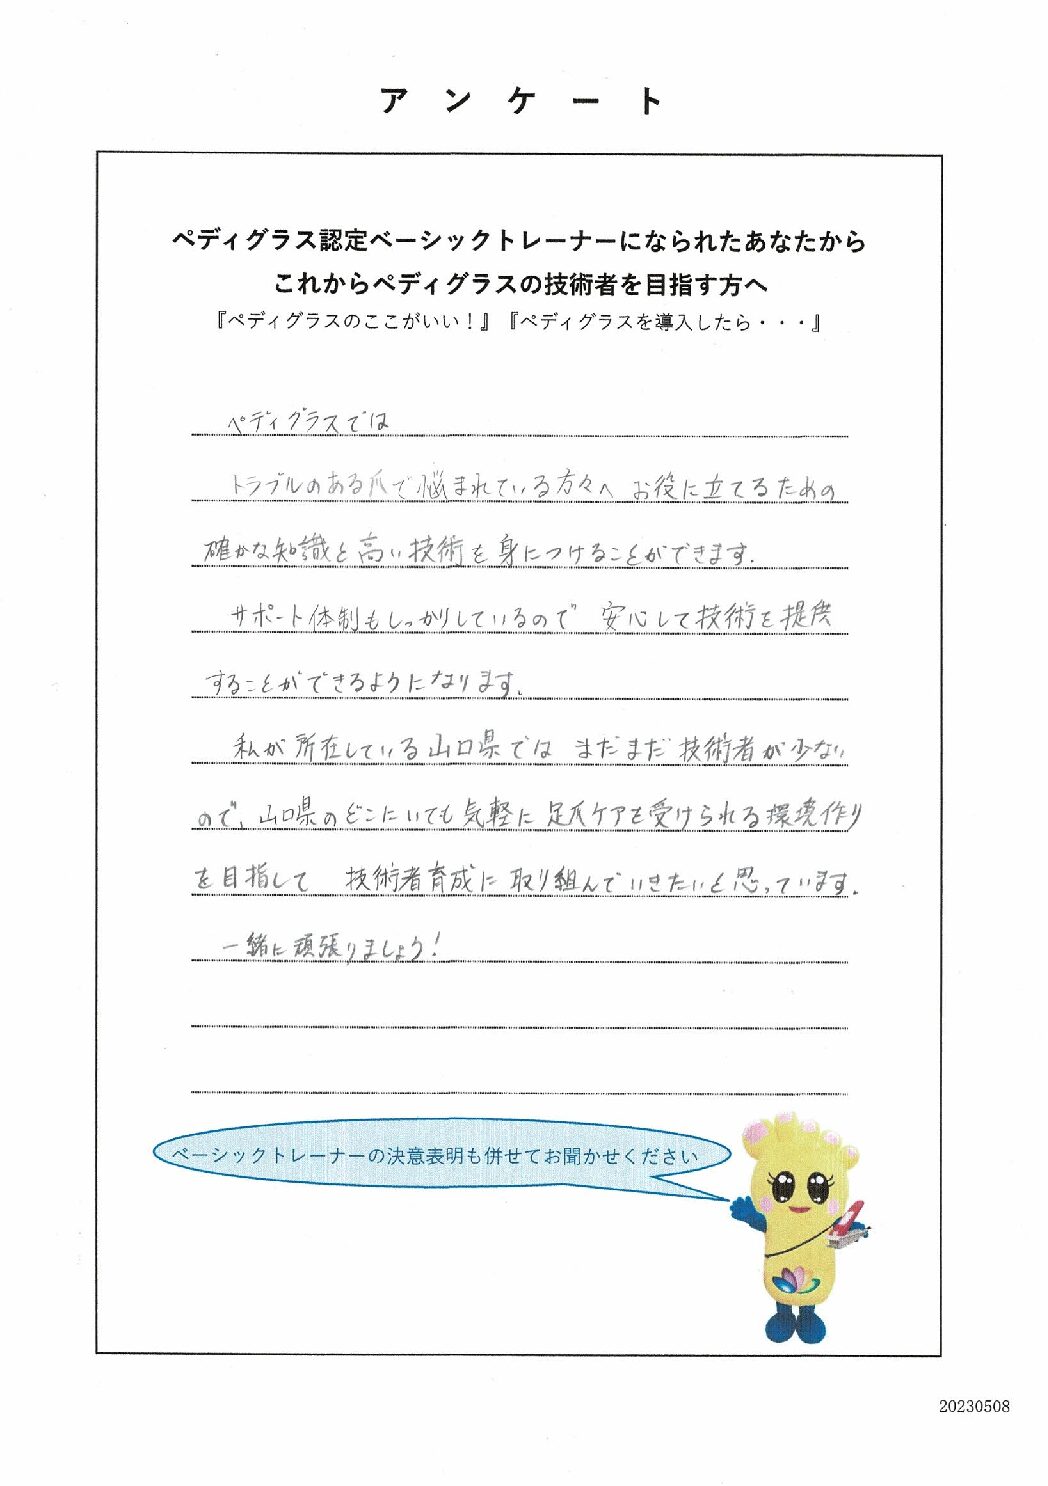 アンケート
ペディグラス認定ベーシックトレーナーになられたあなたから
これからペディグラスの技術者を目指す方へ
『ペディグラスのここがいい！』『ペディグラスを導入したら・・・』
ペディグラスでは
トラブルのある爪で悩まれている方々へ お役に立てるための
確かな知識と高い技術を身につけることができます.
サポート体制もしっかりしているので 安心して技術を提供
することができるようになります.
私が所在している山口県では まだまだ技術者が少ない
ので、山口県のどこにいても気軽に足爪ケアを受けられる環境作り
を目指して 技術者育成に取り組んでいきたいと思っています.
一緒に頑張りましょう!
ベーシックトレーナーの決意表明も併せてお聞かせください
20230508